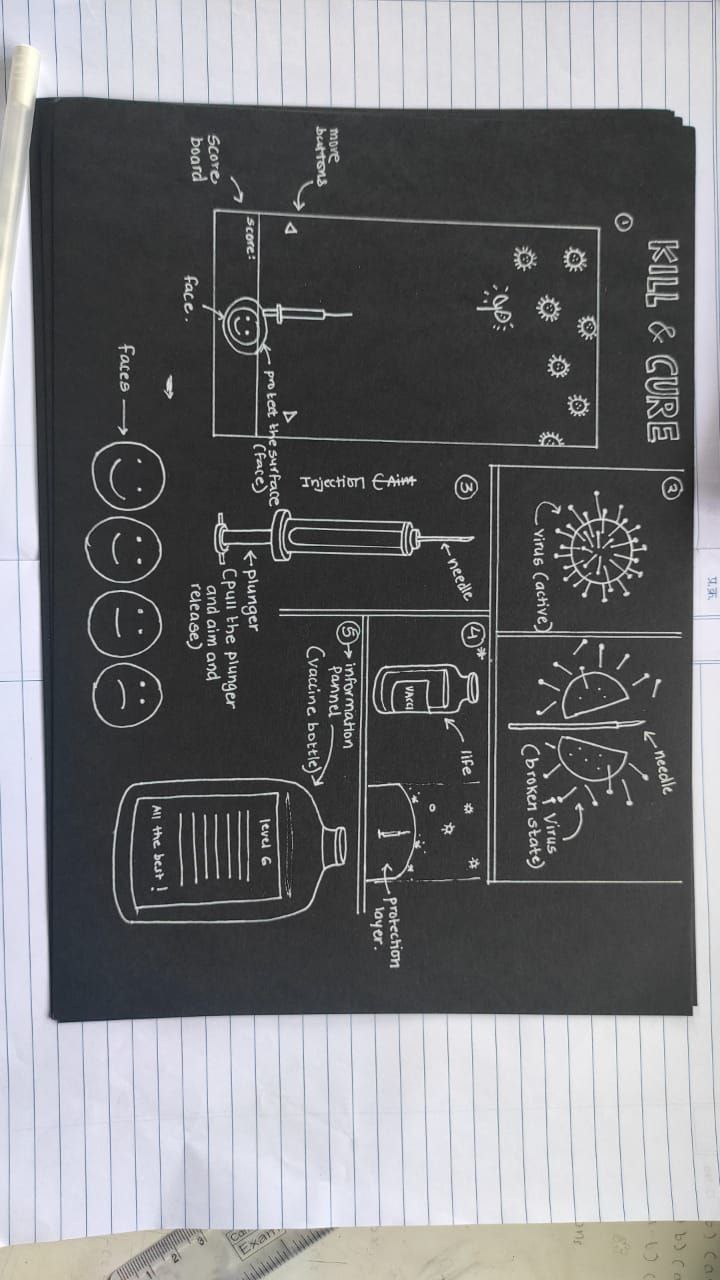 KILL & CURE
①
score:
move
buttons
Score
board
face.
protect the surface
(face)
faces
②
virus (active)
needle
Virus
(broken state)
③
Injection
needle
plunger
(pull the plunger
and aim and
release)
④*
VACCI
life
protection
layer.
⑤ → information
pannel
(vaccine bottle)
level 6
All the best!
Exam
1
2
3